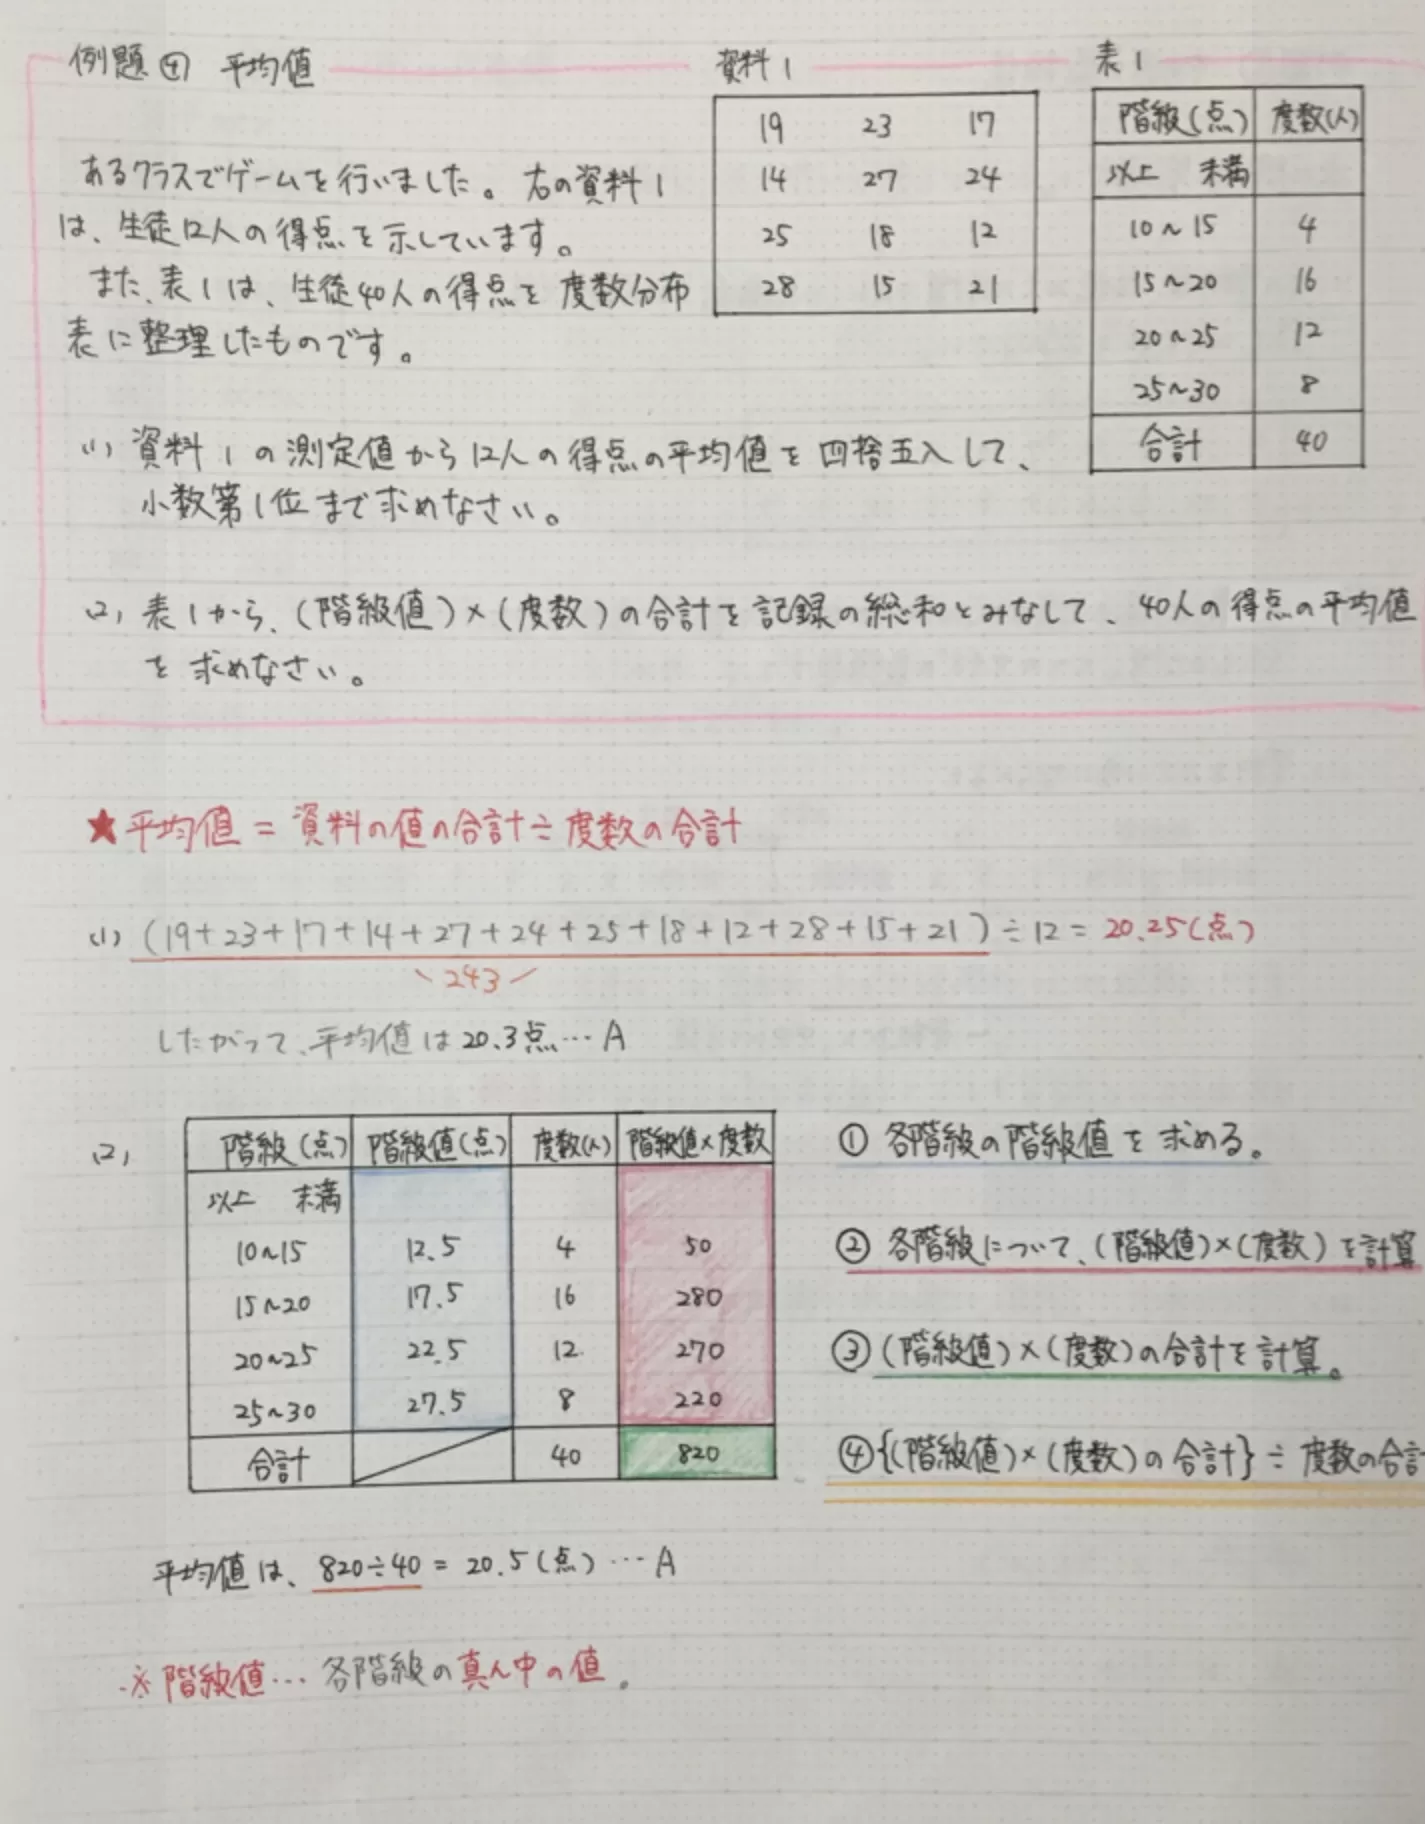 例題④ 平均値
あるクラスでゲームを行いました。右の資料1
は、生徒12人の得点を示しています。
また、表1は、生徒40人の得点を度数分布
表に整理したものです。
資料1
19 23 17
14 27 24
25 18 12
28 15 21
表1
階級(点) 度数(人)
以上 未満
10~15 4
15~20 16
20~25 12
25~30 8
合計 40
(1) 資料1の測定値から12人の得点の平均値を四捨五入して、
小数第1位まで求めなさい。
(2) 表1から、(階級値)×(度数)の合計を記録の総和とみなして、40人の得点の平均値
を求めなさい。
★平均値=資料の値の合計÷度数の合計
(1) (19+23+17+14+27+24+25+18+12+28+15+21)÷12=20.25(点)
\243/
したがって、平均値は20.3点…A
(2)
階級(点) 階級値(点) 度数(人) 階級値×度数
以上 未満
10~15 12.5 4 50
15~20 17.5 16 280
20~25 22.5 12 270
25~30 27.5 8 220
合計 40 820
① 各階級の階級値を求める。
② 各階級について、(階級値)×(度数)を計算
③ (階級値)×(度数)の合計を計算。
④ {(階級値)×(度数)の合計}÷度数の合計
平均値は、820÷40=20.5(点)…A
※階級値…各階級の真ん中の値。